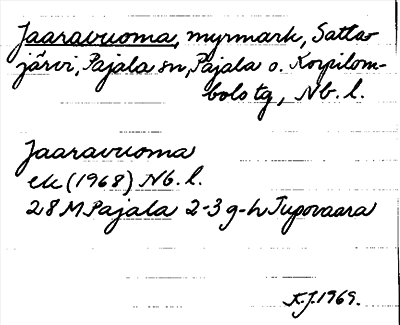 Jaaravuoma, myrmark, Satta-
järvi, Pajala sn, Pajala o. Korpilom-
bolo tg, Nb. l.
Jaaravuoma
ek (1968) Nb. l.
28 M Pajala 2-3 g-h Tupovaara
K.J. 1969.